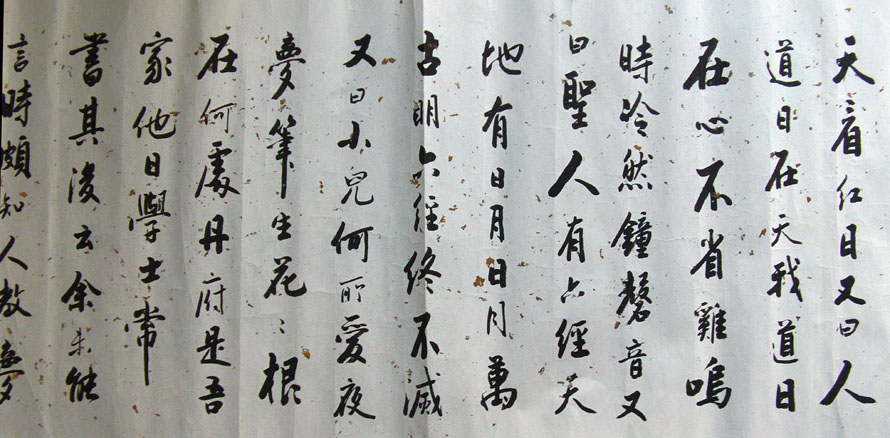 天看红日又曰人
道日在天我道日
在心不省雞鳴
時冷然鐘磬音又
曰聖人有六經天
地有日月日月萬
古明六經終不滅
又曰小兒何所愛夜
夢筆生花〻根
在何處丹府是吾
家他日學士常
書其後云余未能
言時頗知人教夢